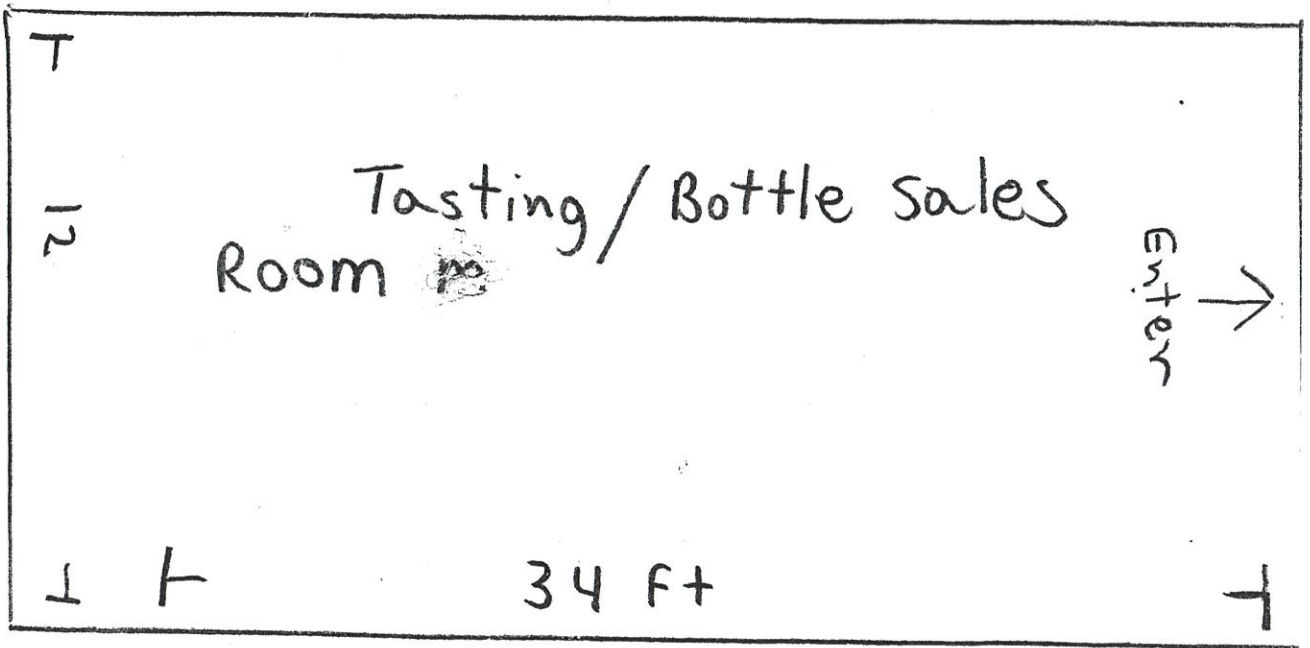 Tasting / Bottle Sales
Room
12
Enter
34 ft